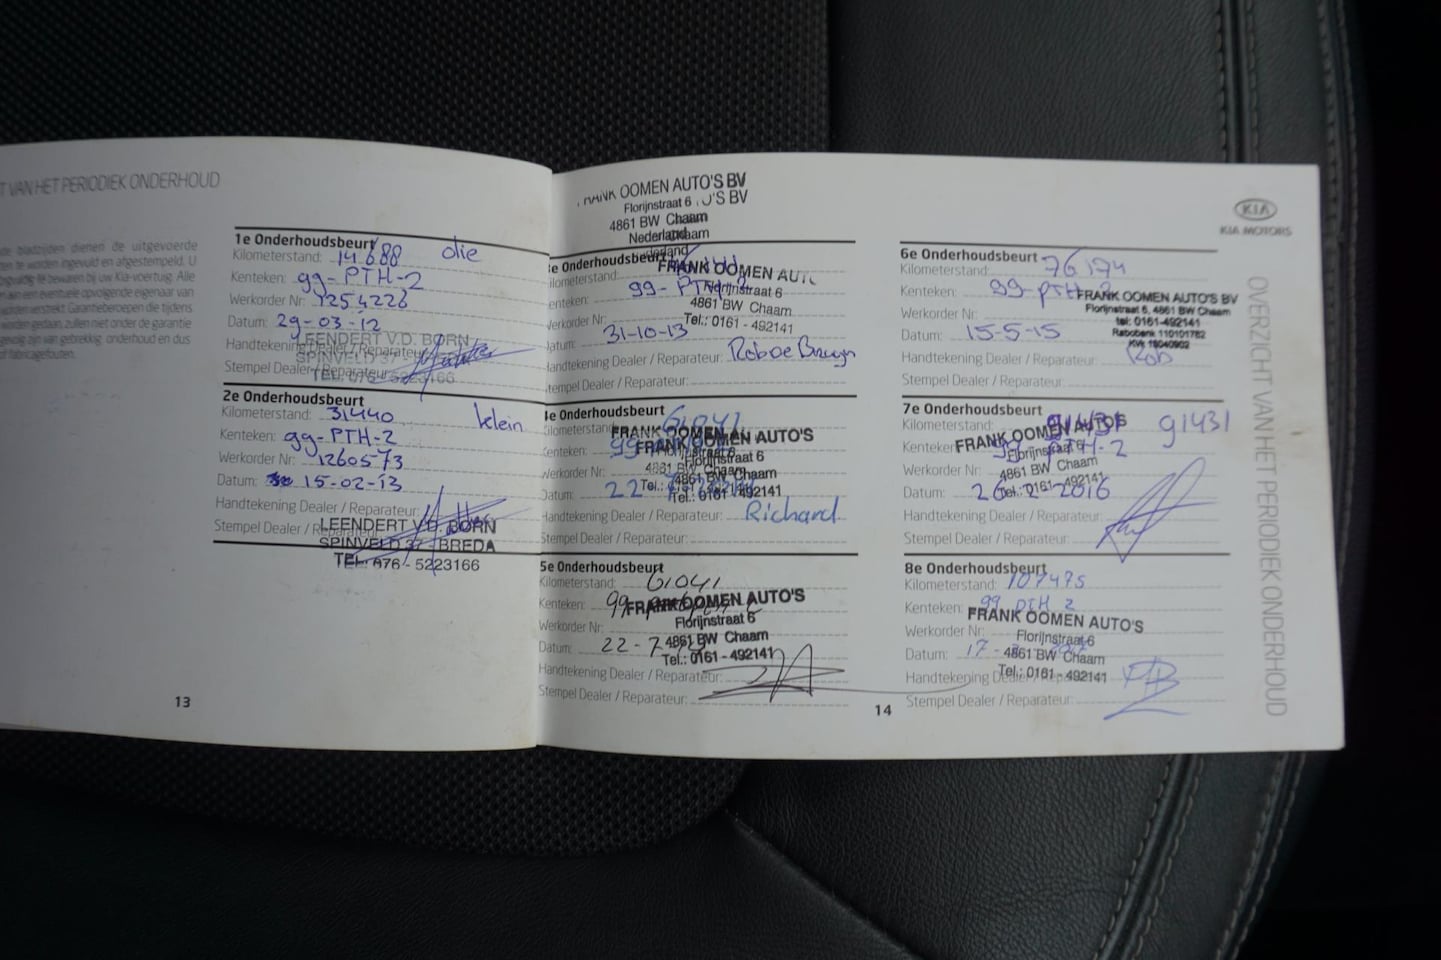 T VAN HET PERIODIEK ONDERHOUD
de bladzijden dienen de uitgevoerde
en te worden ingevuld en afgestempeld. U
gvuldig te bewaren bij uw Kia-voertuig. Alle
aan een eventuele opvolgende eigenaar van
worden verstrekt. Garantieberoepen die tijdens
worden gedaan, zullen niet onder de garantie
gevolg zijn van gebrekkig onderhoud en dus
of fabricagefouten.
1e Onderhoudsbeurt
Kilometerstand: 14688 olie
Kenteken: 99-PTH-2
Werkorder Nr: 1254226
Datum: 29-03-12
Handtekening Dealer / Reparateur:
Stempel Dealer / Reparateur:
LEENDERT V.D. BORN
SPINVELD 37
TEL. 076 - 5223166
2e Onderhoudsbeurt
Kilometerstand: 31440 klein
Kenteken: 99-PTH-2
Werkorder Nr: 1260573
Datum: 15-02-13
Handtekening Dealer / Reparateur:
Stempel Dealer / Reparateur:
LEENDERT V.D. BORN
SPINVELD 37 BREDA
TEL. 076 - 5223166
13
FRANK OOMEN AUTO'S BV
Florijnstraat 6
4861 BW Chaam
Nederland
e Onderhoudsbeurt
ilometerstand:
enteken: 99-PTH-2
Werkorder Nr:
atum: 31-10-13
Handtekening Dealer / Reparateur: Rob de Bruyn
tempel Dealer / Reparateur:
FRANK OOMEN AUTO
Florijnstraat 6
4861 BW Chaam
Tel.: 0161 - 492141
4e Onderhoudsbeurt
ilometerstand: 61041
Kenteken: 99
Werkorder Nr:
Datum: 22
Handtekening Dealer / Reparateur: Richard
Stempel Dealer / Reparateur:
FRANK OOMEN AUTO'S
Florijnstraat 6
4861 BW Chaam
Tel.: 0161 - 492141
5e Onderhoudsbeurt
Kilometerstand: 61041
Kenteken: 99
Werkorder Nr:
Datum: 22-7
Handtekening Dealer / Reparateur:
Stempel Dealer / Reparateur:
FRANK OOMEN AUTO'S
Florijnstraat 6
4861 BW Chaam
Tel.: 0161 - 492141
14
KIA
KIA MOTORS
6e Onderhoudsbeurt
Kilometerstand: 76174
Kenteken: 99-PTH-2
Werkorder Nr:
Datum: 15-5-15
Handtekening Dealer / Reparateur: Rob
Stempel Dealer / Reparateur:
FRANK OOMEN AUTO'S BV
Florijnstraat 6, 4861 BW Chaam
tel: 0161-492141
Rabobank 1101101782
KVK 18040902
7e Onderhoudsbeurt
Kilometerstand: 91431 91431
Kenteken: 99 PTH-2
Werkorder Nr:
Datum: 26 2016
Handtekening Dealer / Reparateur:
Stempel Dealer / Reparateur:
FRANK OOMEN AUTO'S
Florijnstraat 6
4861 BW Chaam
Tel.: 0161 - 492141
8e Onderhoudsbeurt
Kilometerstand: 107475
Kenteken: 99 PTH 2
Werkorder Nr:
Datum: 17
Handtekening Dealer / Reparateur:
Stempel Dealer / Reparateur:
FRANK OOMEN AUTO'S
Florijnstraat 6
4861 BW Chaam
Tel.: 0161 - 492141
OVERZICHT VAN HET PERIODIEK ONDERHOUD